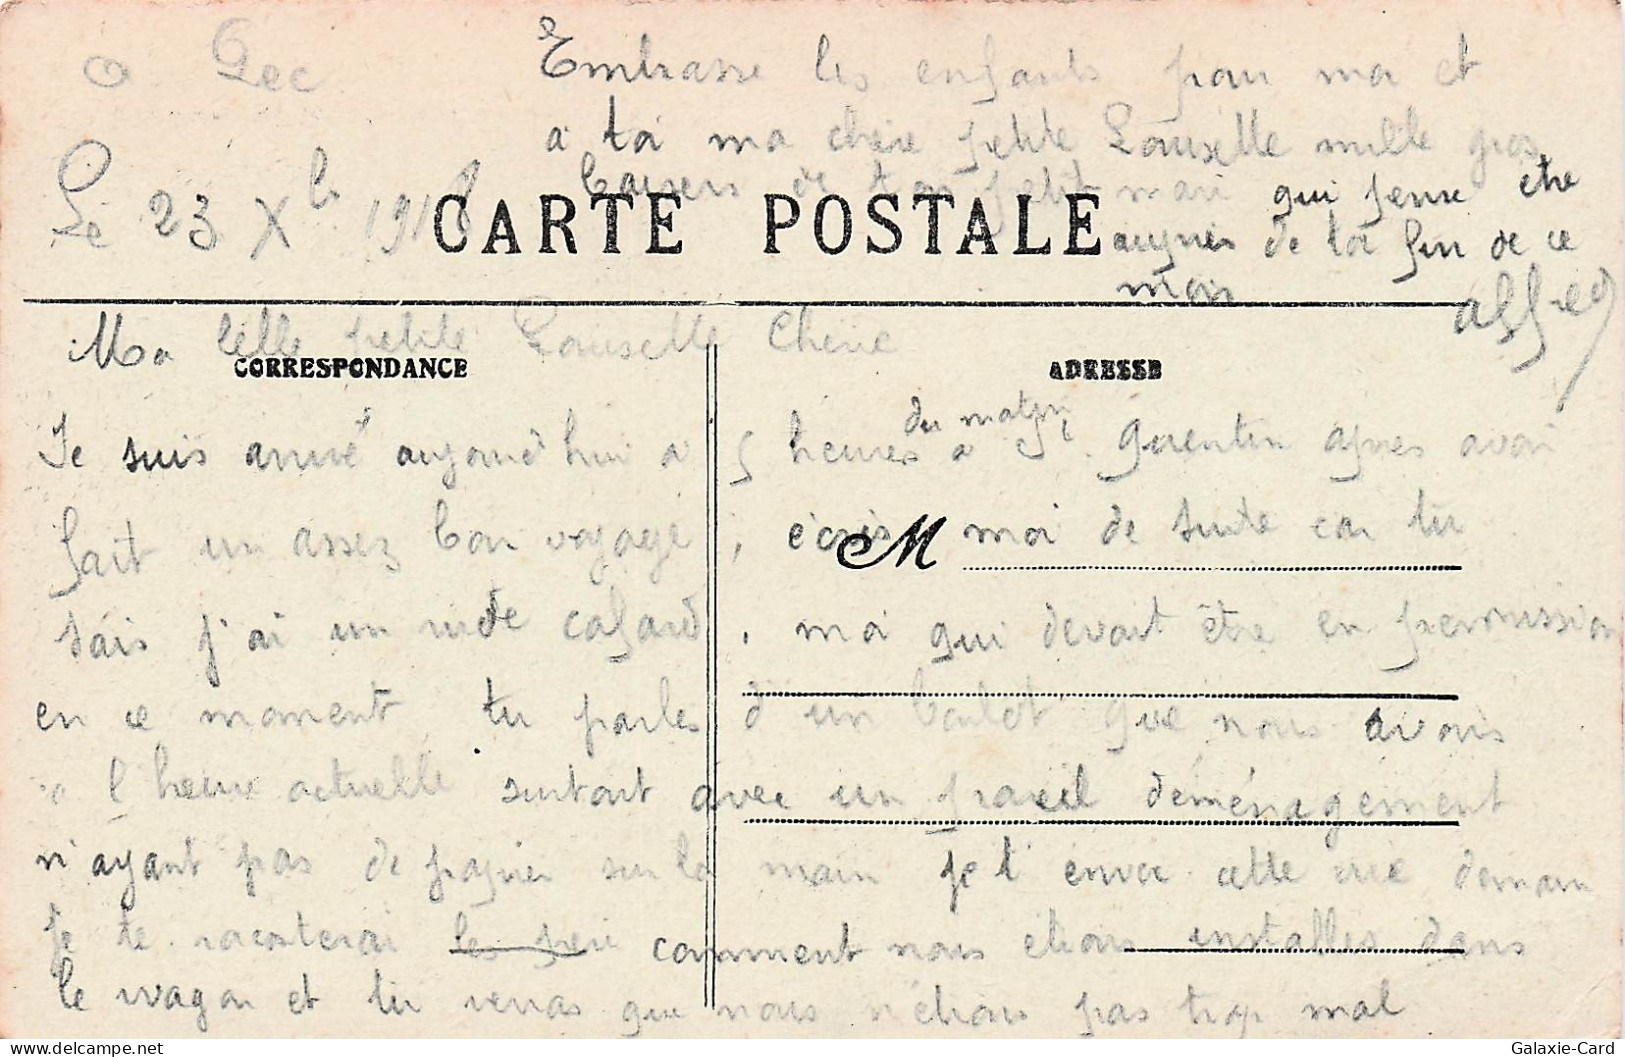 Le 23 Xb 1918
CARTE POSTALE
Ma belle petite Lousette Cherie
CORRESPONDANCE
ADRESSE
Je suis arrivé aujourd'hui a 5 heures du matin a St Quentin apres avoir
fait un assez bon voyage, ecris moi de suite car tu
M
sais j'ai un rude cafard, moi qui devait être en permission
en ce moment tu parles d'un boulot que nous avons
a l'heure actuelle surtout avec un pareil déménagement
n'ayant pas de papier sur la main je t'envoi cette vue demain
je te raconterai comment nous etions installes dans
le wagon et tu verras que nous n'étions pas trop mal
Embrasse les enfants pour moi et
a toi ma chère petite Lousette mille gros
baisers de ton petit mari qui pense etre
aupres de toi fin de ce
mois
Alfred
Galaxie-Card